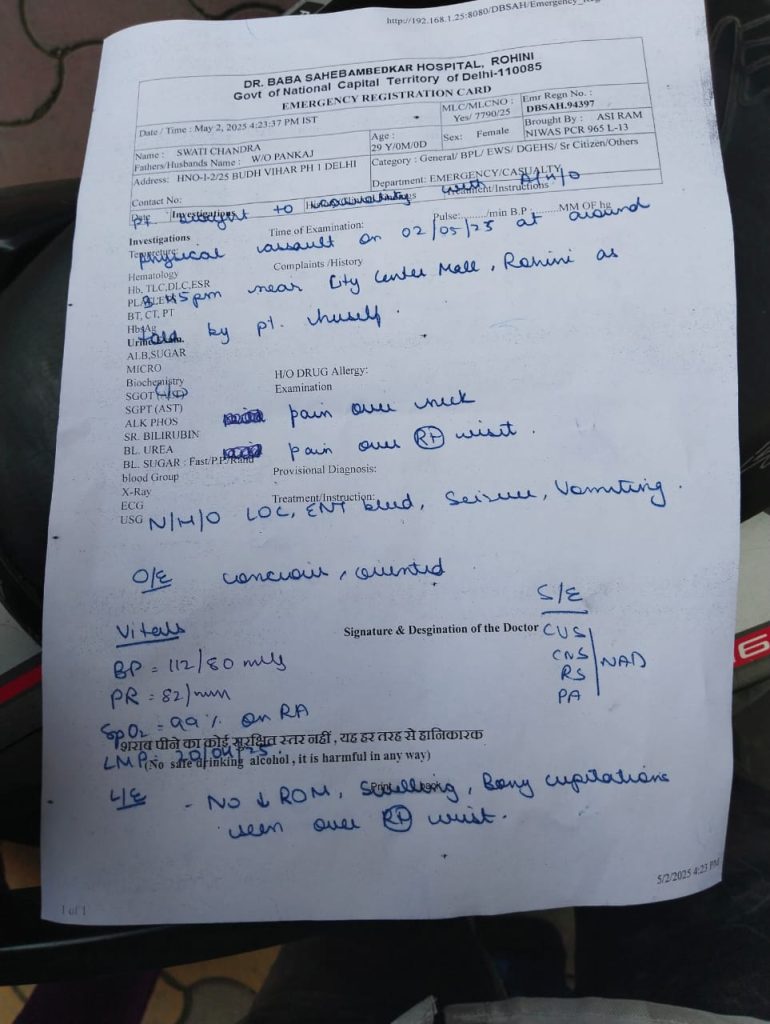 http://192.168.1.25:8080/DBSAH/Emergency_Reg
DR. BABA SAHEBAMBEDKAR HOSPITAL, ROHINI
Govt of National Capital Territory of Delhi-110085
EMERGENCY REGISTRATION CARD
Date / Time : May 2, 2025 4:23:37 PM IST
MLC/MLCNO : Yes/ 7790/25
Emr Regn No. : DBSAH.94397
Name : SWATI CHANDRA
Age : 29 Y/0M/0D
Sex: Female
Brought By : ASI RAM NIWAS PCR 965 L-13
Fathers/Husbands Name : W/O PANKAJ
Address: HNO-I-2/25 BUDH VIHAR PH 1 DELHI
Category : General/ BPL/ EWS/ DGEHS/ Sr Citizen/Others
Contact No:
Department: EMERGENCY/CASUALTY
Date Investigations Treatment/Instructions
pt brought to casualty with A/H/O
Investigations
Time of Examination:
Pulse:......./min B.P ..........MM OF hg
physical assault on 02/05/25 at around
Complaints /History
Hematology
Hb, TLC,DLC,ESR
3:45pm near City Center Mall, Rohini as
BT, CT, PT
told by pt. herself.
ALB,SUGAR
MICRO
Biochemistry
H/O DRUG Allergy:
SGOT
Examination
SGPT (AST)
ALK PHOS
pain over neck
SR. BILIRUBIN
BL. UREA
pain over Rt wrist.
BL. SUGAR : Fast/P.P./Rand
blood Group
Provisional Diagnosis:
X-Ray
ECG
Treatment/Instruction:
USG
N/H/O LOC, ENT bleed, Seizure, Vomiting.
O/E concious, oriented
S/E
Vitals
Signature & Desgination of the Doctor
CVS
CNS
RS
PA
NAD
BP = 112/80 mmHg
PR = 82/min
SpO2 = 99% on RA
शराब पीने का कोई सुरक्षित स्तर नहीं , यह हर तरह से हानिकारक
LMP: 20/04/25.
(No safe drinking alcohol , it is harmful in any way)
L/E - No ↓ ROM, Swelling, Bony crepitations
seen over Rt wrist.
5/2/2025 4:23 PM
1 of 1